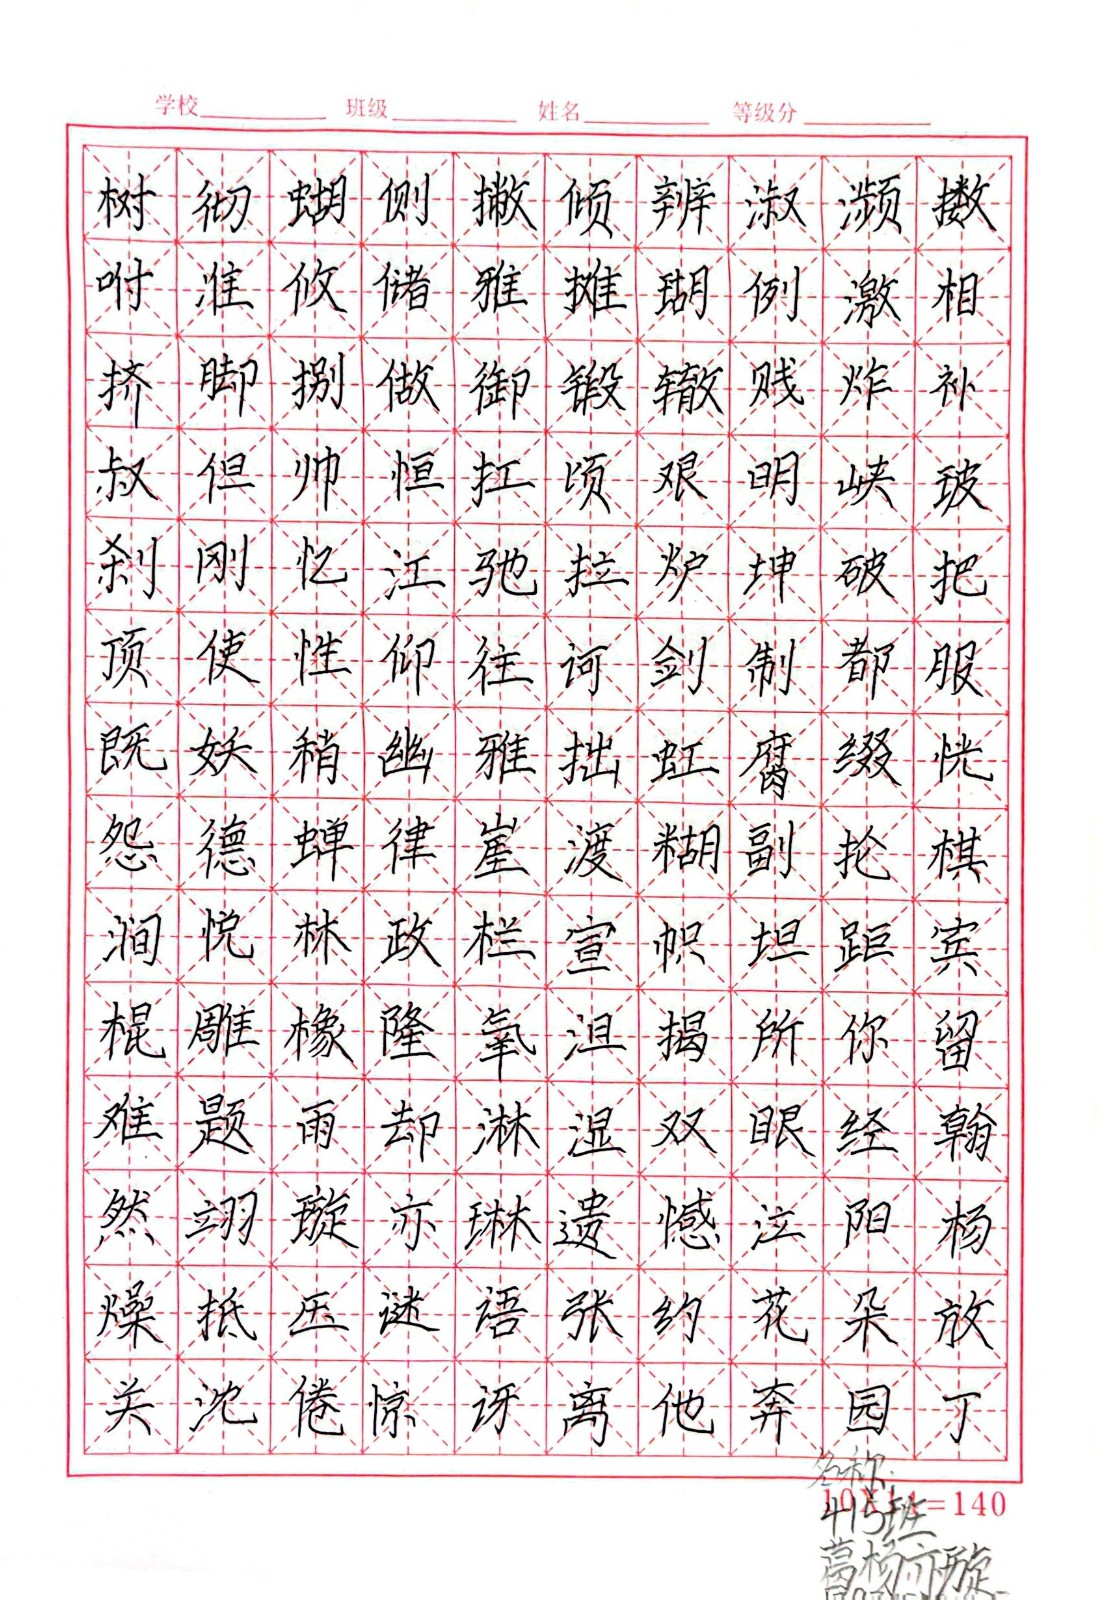 学校 班级 姓名 等级分
树 彻 蝴 侧 撇 倾 辨 淑 濒 擞
咐 准 攸 储 雅 摊 瑚 例 激 相
挤 脚 捌 做 御 锻 辙 贱 炸 补
叔 但 帅 恒 扛 顷 艰 明 峡 玻
刹 刚 忆 江 驰 拉 炉 坤 破 把
顶 使 性 仰 往 诃 剑 制 都 服
既 妖 稍 幽 雅 拙 虹 腐 缀 恍
怨 德 蝉 律 崖 渡 糊 副 抡 棋
涧 悦 林 政 栏 宣 帜 坦 距 宾
棍 雕 橡 隆 氧 泹 揭 所 你 留
难 题 雨 却 淋 湿 双 眼 经 翰
然 翊 璇 亦 琳 遗 憾 泣 阳 杨
燥 抵 压 谜 语 张 约 花 朵 放
关 沈 倦 惊 讶 离 他 奔 园 丁
名称:
10X14=140
415班
葛杨亦璇